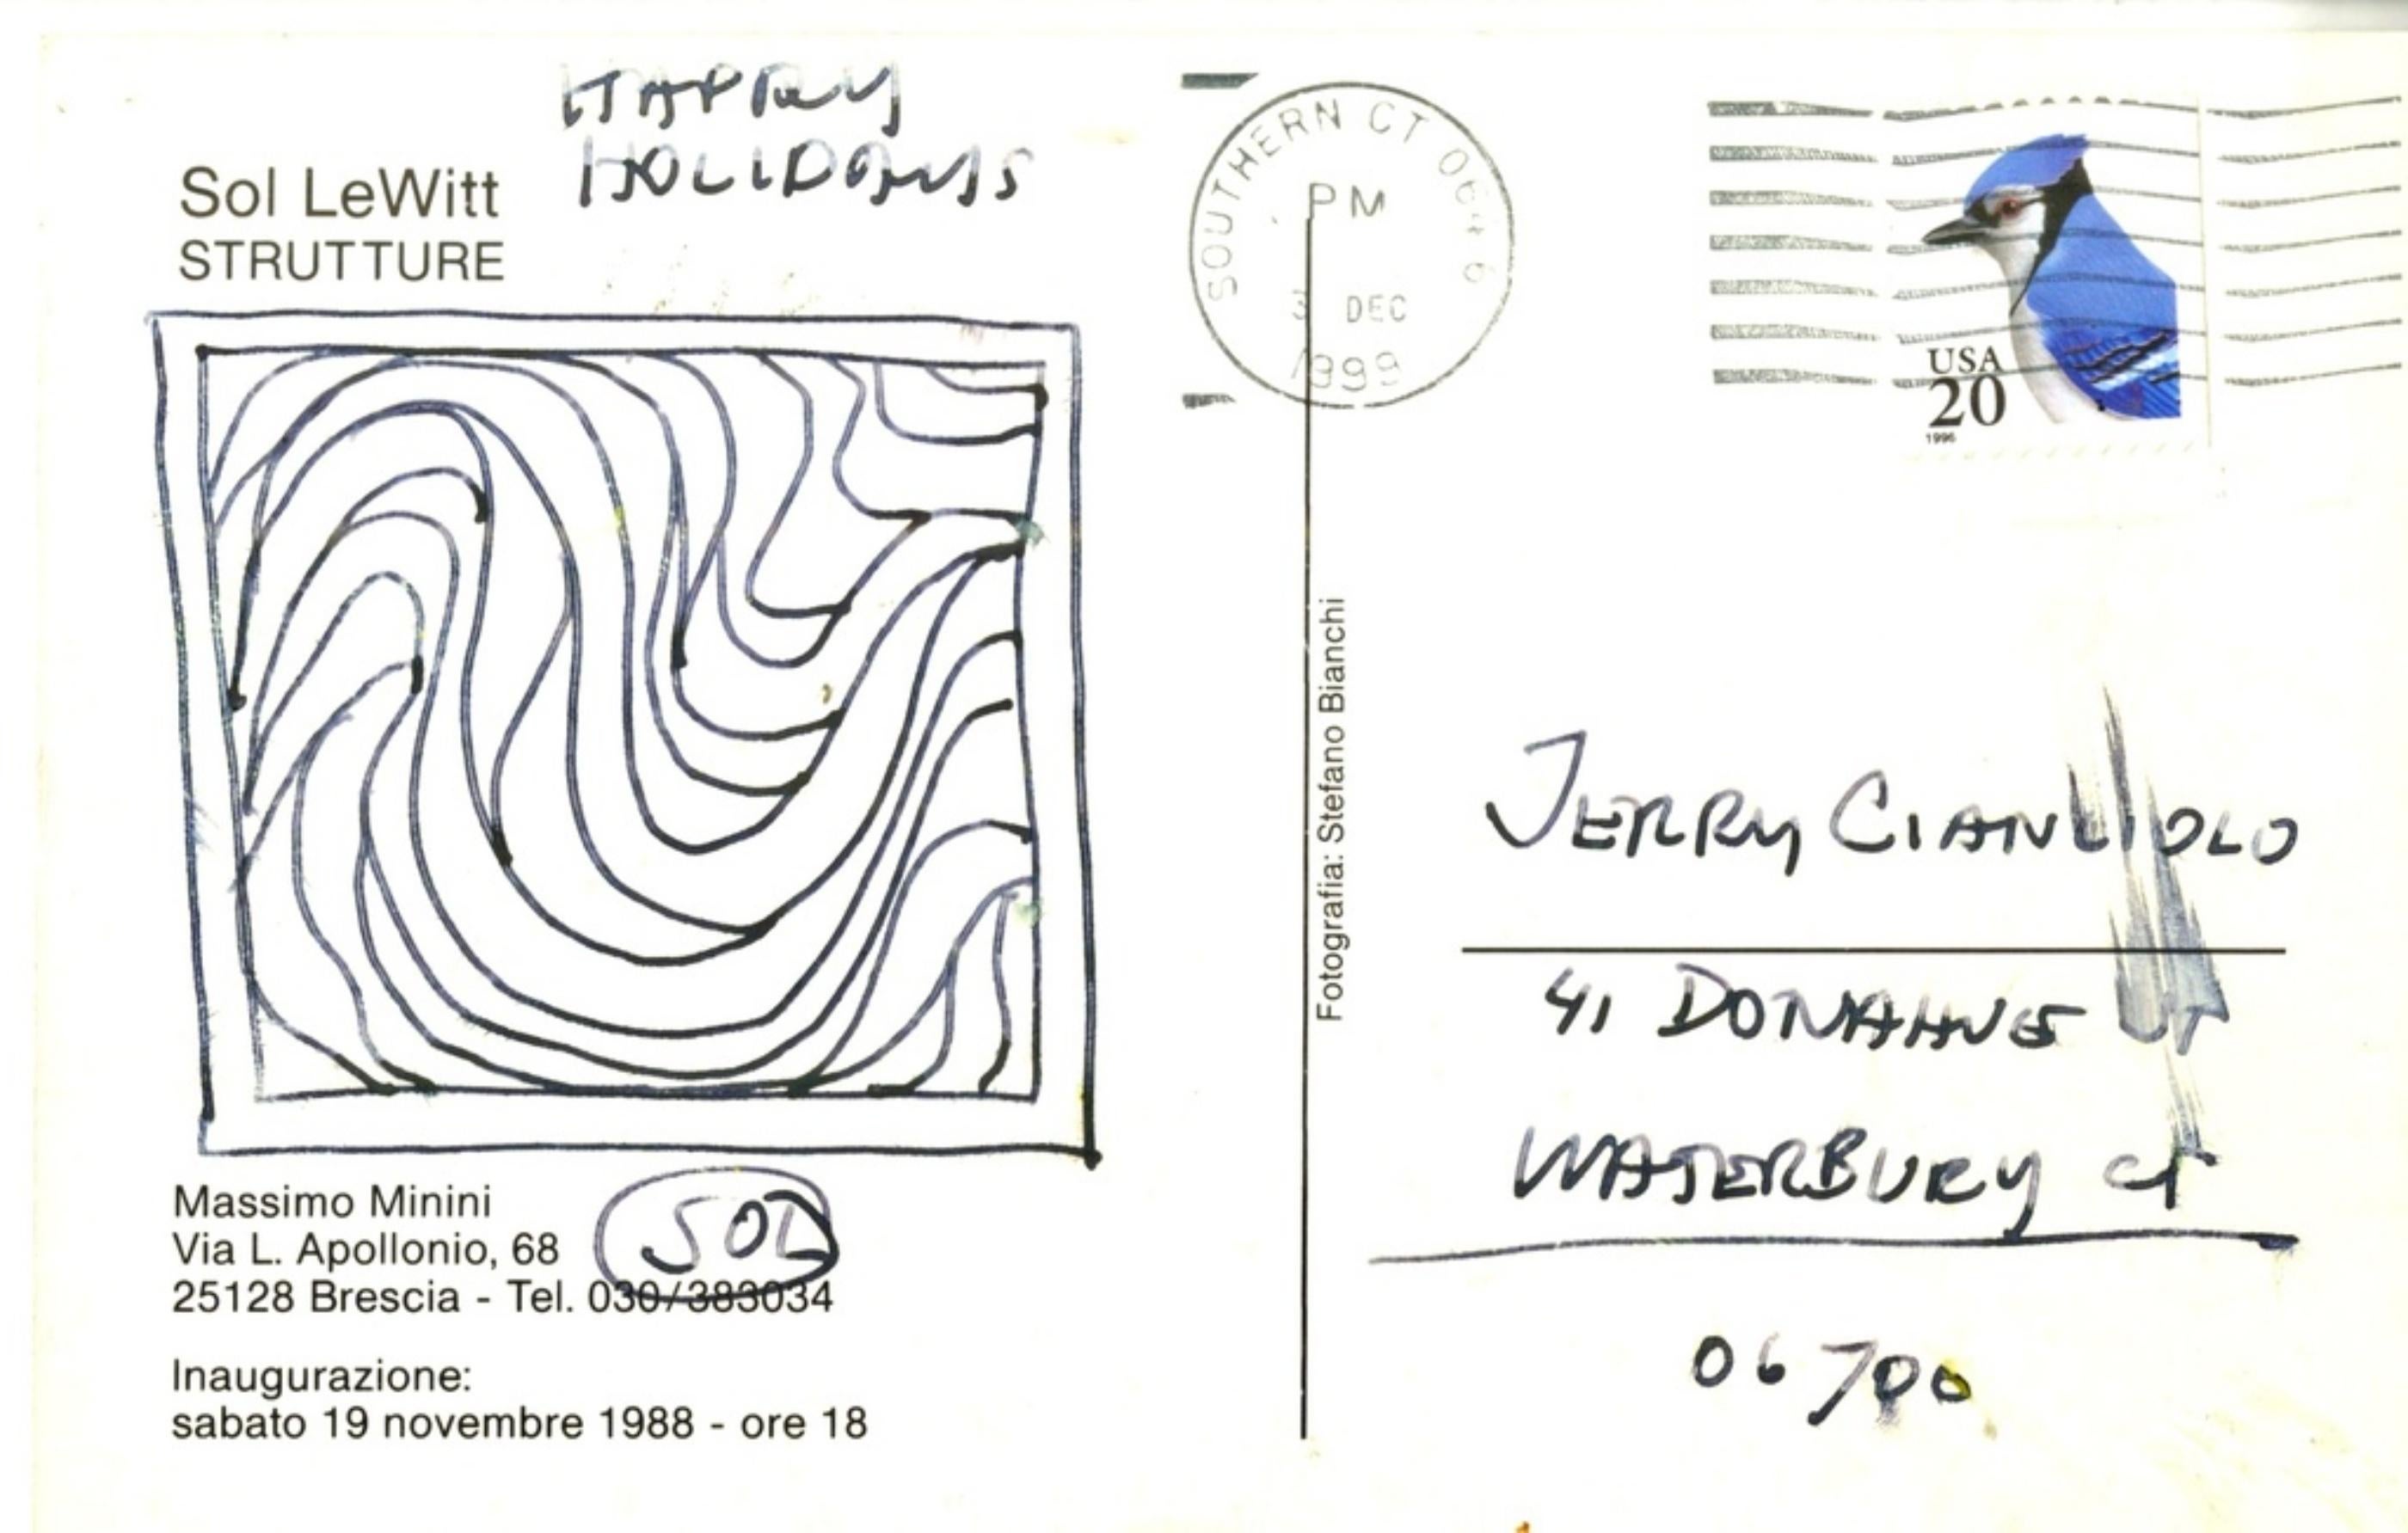 HAPPY
HOLIDAYS
Sol LeWitt
STRUTTURE
Massimo Minini
Via L. Apollonio, 68
25128 Brescia - Tel. 030/383034
SOL
Inaugurazione:
sabato 19 novembre 1988 - ore 18
SOUTHERN CT
PM
DEC
1999
Fotografia: Stefano Bianchi
USA
20
1996
JERRY
41 DONAHUE
WATERBURY CT
06700